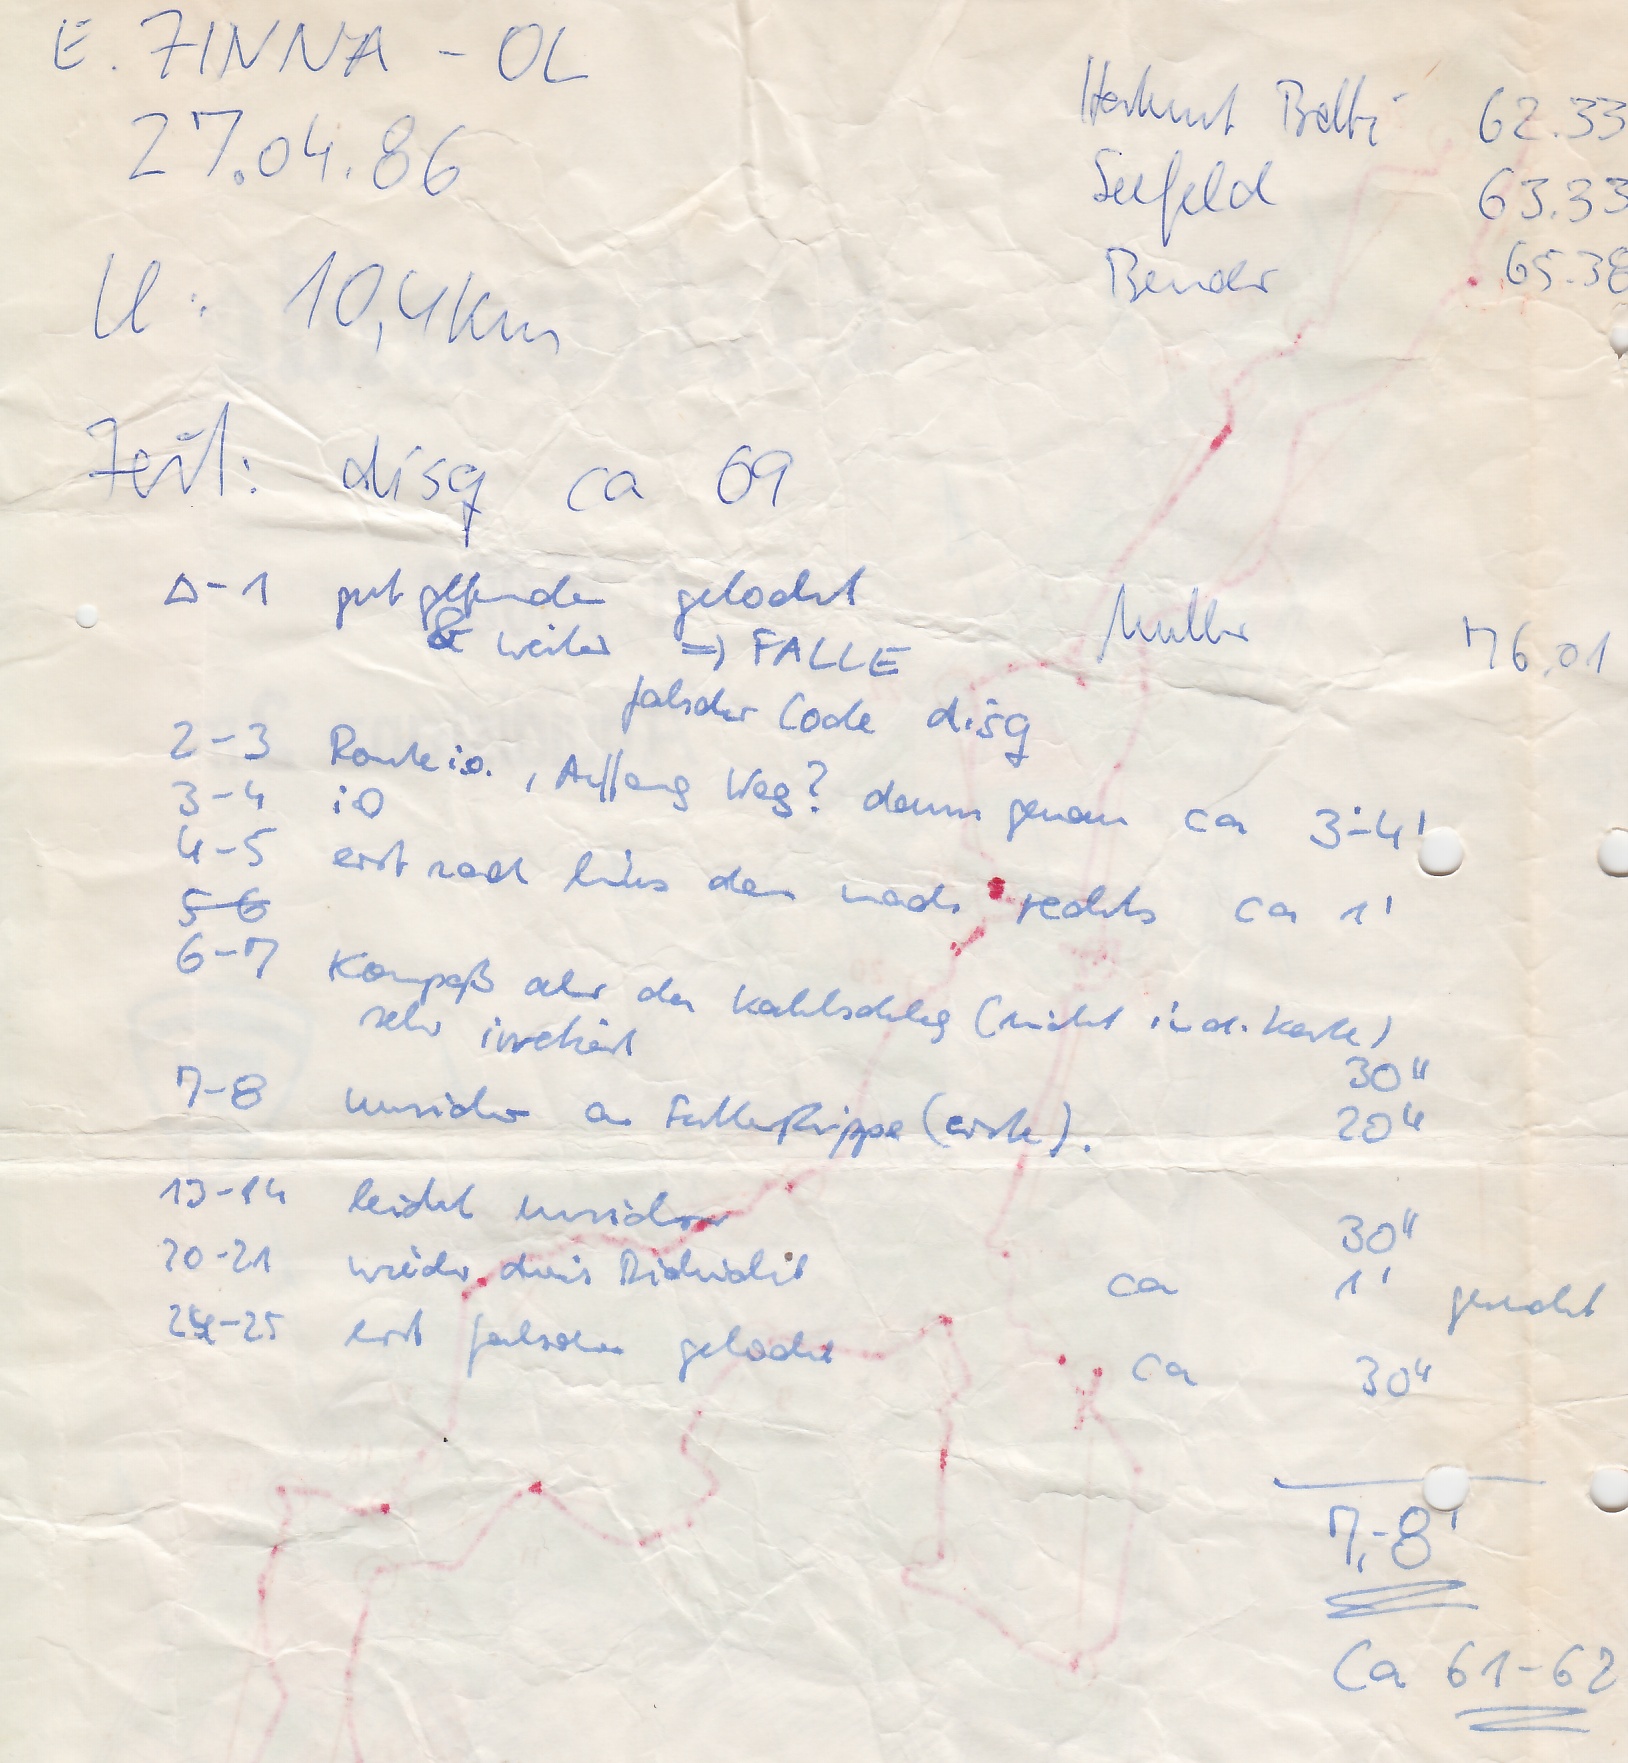 E. ZINNA - OL
27.04.86
Hartmut 62.33
Seefeld 63.33
Bender 65.38
U: 10,4 Km
Zeit: disq ca 69
Δ-1 gut gelocht
& weiter => FALLE
falscher Code disq
Müller 76.01
2-3 Route i.o., Auffang Weg? dann genau ca 3-4'
3-4 iO
4-5 erst nach links dann nach rechts ca 1'
5-6
6-7 Kompaß aber der Kahlschlag (nicht in d. Karte)
sehr irritiert 30"
7-8 unsicher an (erste). 20"
13-14 leicht unsicher 30"
20-21 wieder durchs Dickicht ca 1' gesucht
24-25 erst falschen gelocht ca 30"
7-8'
Ca 61-62